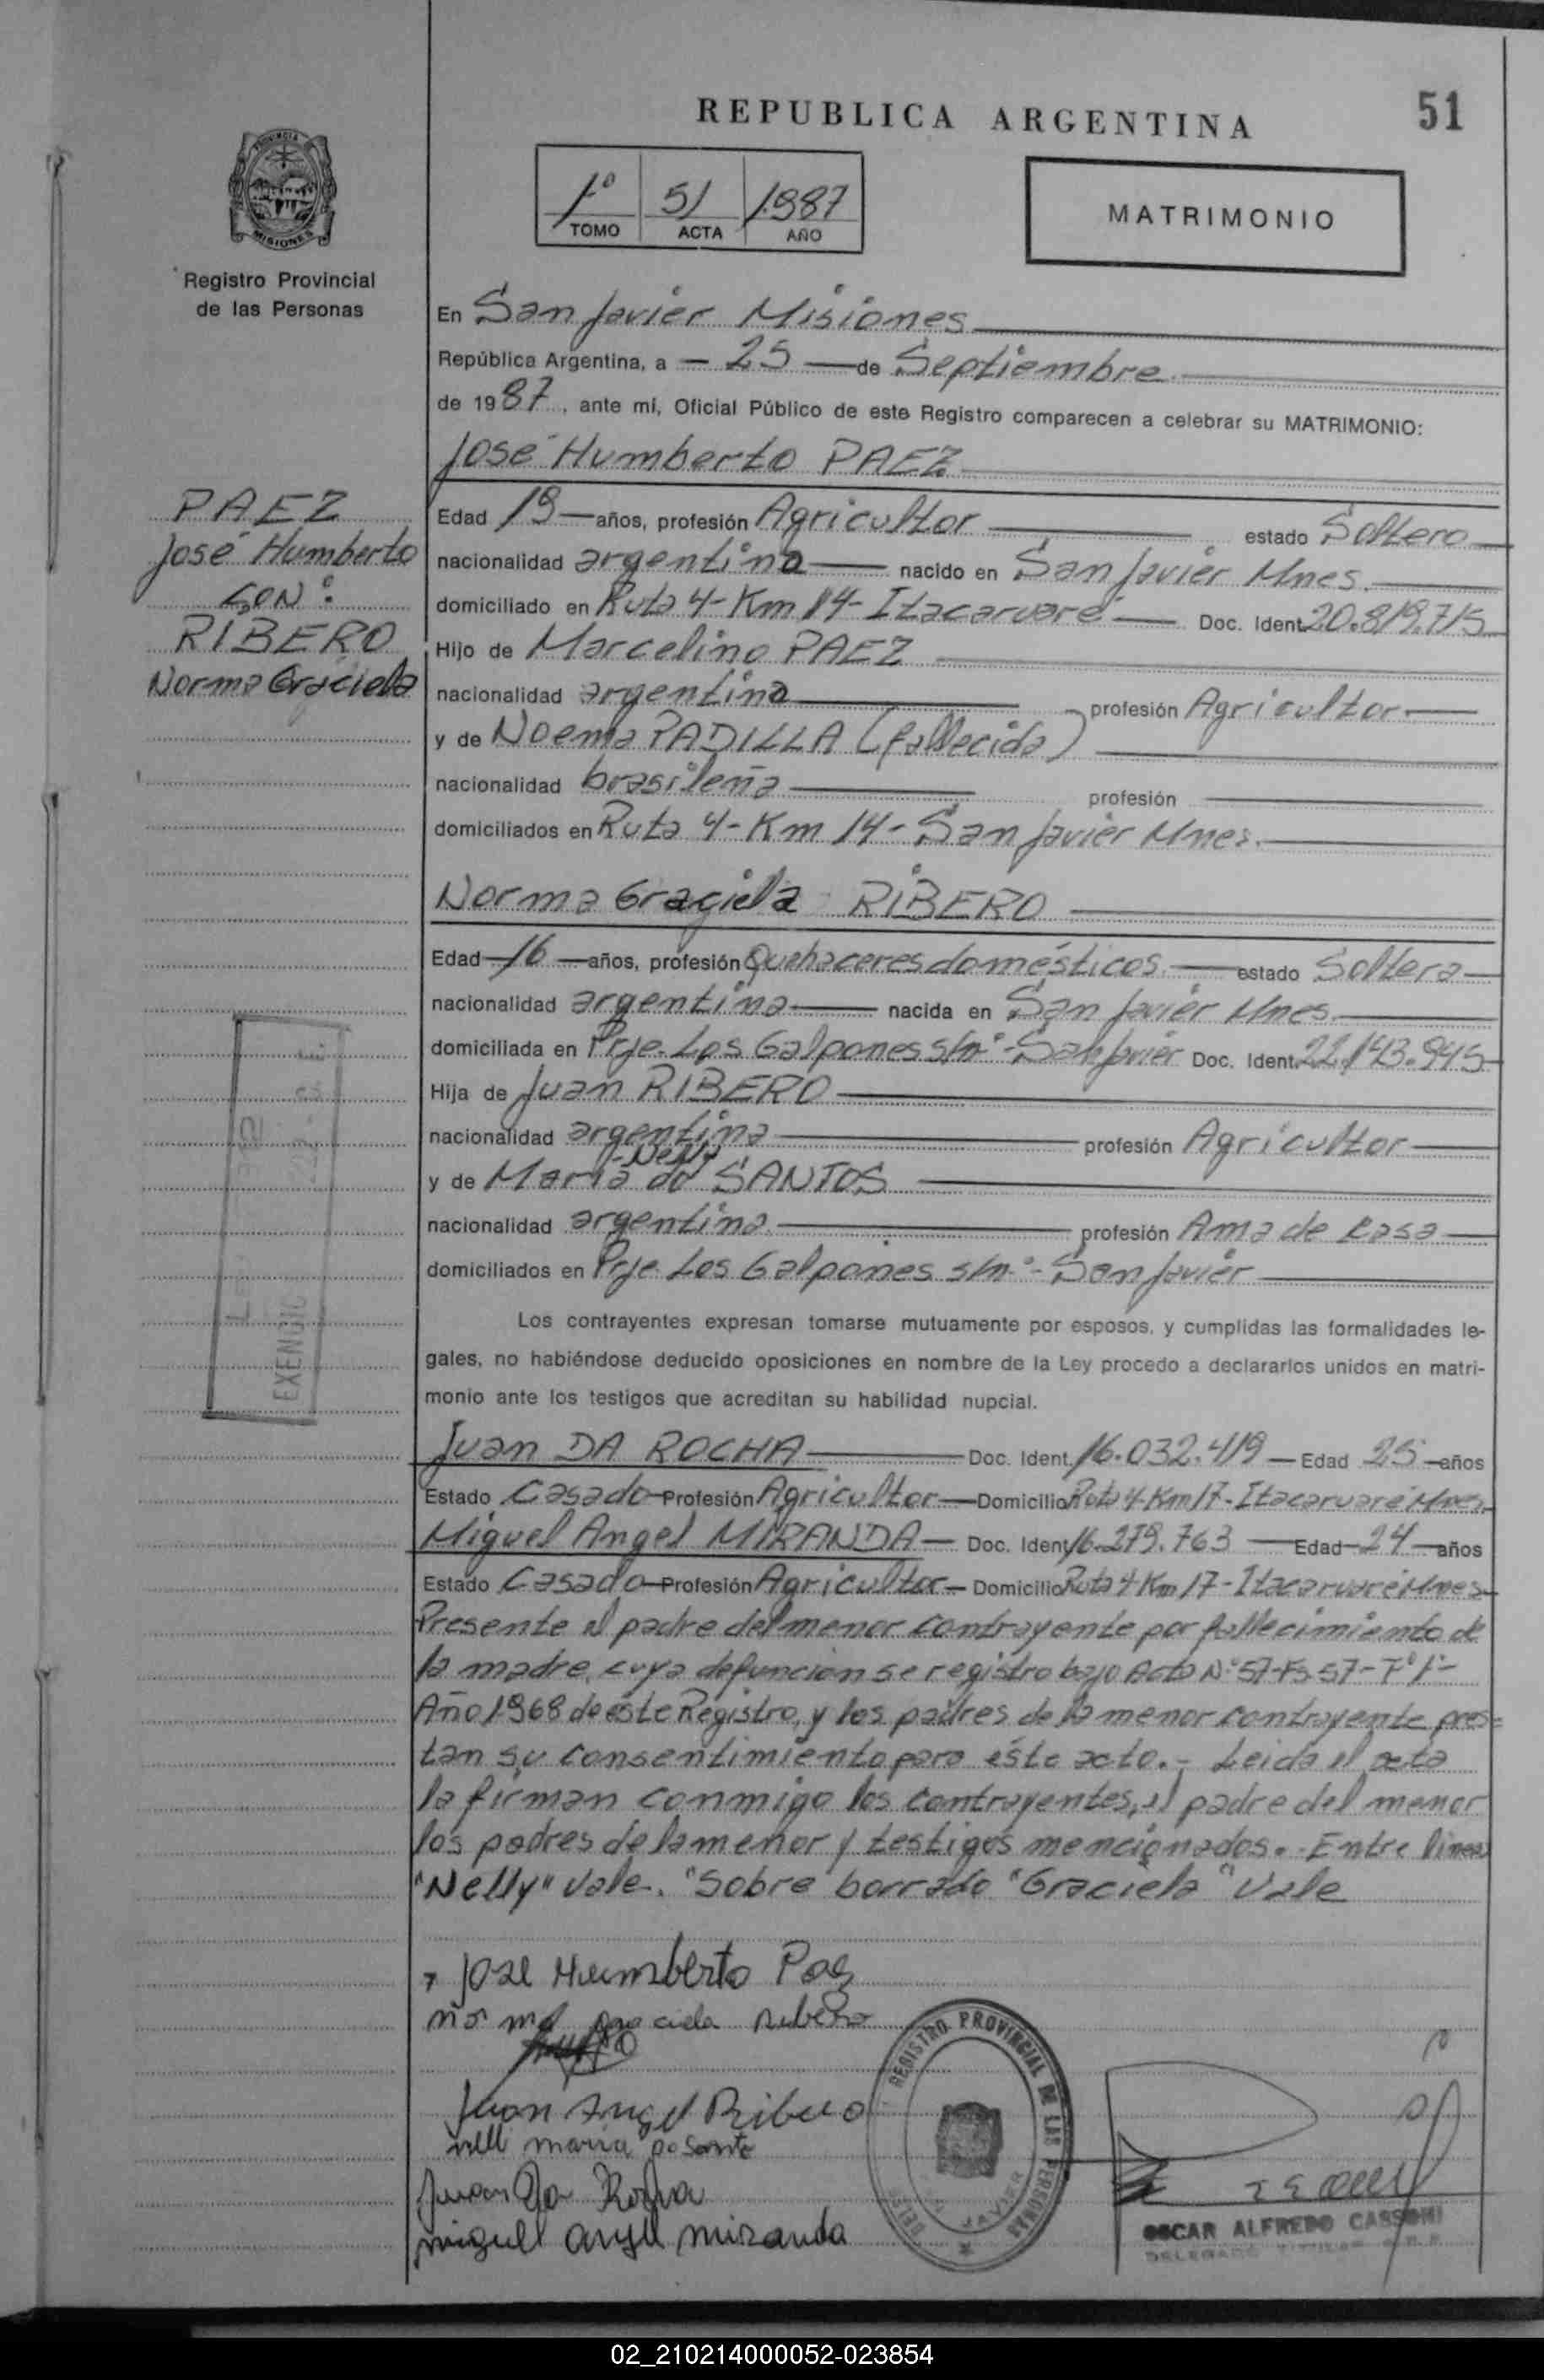 51
REPUBLICA ARGENTINA
1º 51 1987
TOMO ACTA AÑO
MATRIMONIO
PROVINCIA
MISIONES
Registro Provincial
de las Personas
En San Javier Misiones
República Argentina, a — 25 — de Septiembre
de 1987, ante mí, Oficial Público de este Registro comparecen a celebrar su MATRIMONIO:
José Humberto PAEZ
PAEZ
José Humberto
CON:
RIBERO
Norma Graciela
Edad 19 — años, profesión Agricultor — estado Soltero
nacionalidad argentina — nacido en San Javier Mnes.
domiciliado en Ruta 4- Km 14- Itacaruaré — Doc. Ident. 20.819.715
Hijo de Marcelino PAEZ
nacionalidad argentina — profesión Agricultor —
y de Noema PADILLA (fallecida)
nacionalidad brasileña — profesión —
domiciliados en Ruta 4- Km 14- San Javier Mnes.
Norma Graciela RIBERO
Edad — 16 — años, profesión Quehaceres domésticos — estado Soltera
nacionalidad argentina — nacida en San Javier Mnes.
domiciliada en Prje. Los Galpones s/nº- San Javier Doc. Ident. 22.143.945
Hija de Juan RIBERO
nacionalidad argentina — profesión Agricultor —
Nelly
y de María do SANTOS
nacionalidad argentina. — profesión Ama de casa —
domiciliados en Prje. Los Galpones s/nº- San Javier
Los contrayentes expresan tomarse mutuamente por esposos, y cumplidas las formalidades le-
gales, no habiéndose deducido oposiciones en nombre de la Ley procedo a declararlos unidos en matri-
monio ante los testigos que acreditan su habilidad nupcial.
Juan DA ROCHA — Doc. Ident. 16.032.419 — Edad 25 — años
Estado Casado — Profesión Agricultor — Domicilio Ruta 4-Km 17- Itacaruaré Mnes.
Miguel Angel MIRANDA — Doc. Ident. 16.279.763 — Edad — 24 — años
Estado Casado — Profesión Agricultor — Domicilio Ruta 4 Km 17- Itacaruaré Mnes.
Presente el padre del menor contrayente por fallecimiento de
la madre, cuya defunción se registro bajo Acta Nº 57-Fs 57- Tº 1º-
Año 1968 de éste Registro, y los padres de la menor contrayente pres=
tan su consentimiento para éste acto.- Leida el acta
la firman conmigo los contrayentes, el padre del menor
los padres de la menor y testigos mencionados. Entre lineas
"Nelly" vale. "Sobre borrado "Graciela" Vale
EXENDIC
Jose Humberto Paez
norma graciela Ribero
Juan Angel Ribero
nelli maria
Juan Da Rocha
miguel angel miranda
REGISTRO PROVINCIAL DE LAS PERSONAS
JAVIER
OSCAR ALFREDO CASSONI
DELEGADO TITULAR
02_210214000052-023854